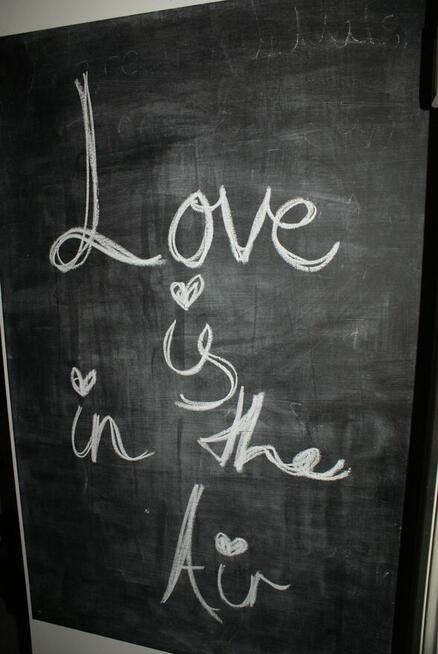 Love
is
in the
Air